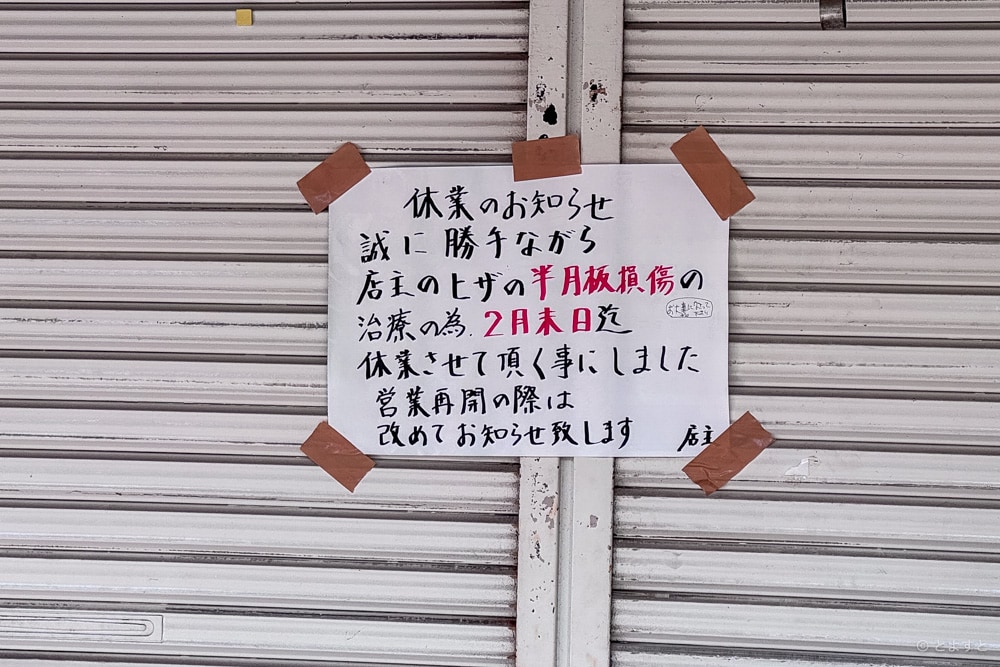 休業のお知らせ
誠に勝手ながら
店主のヒザの半月板損傷の
治療の為、2月末日迄
休業させて頂く事にしました
営業再開の際は
改めてお知らせ致します
店主
© とよすと